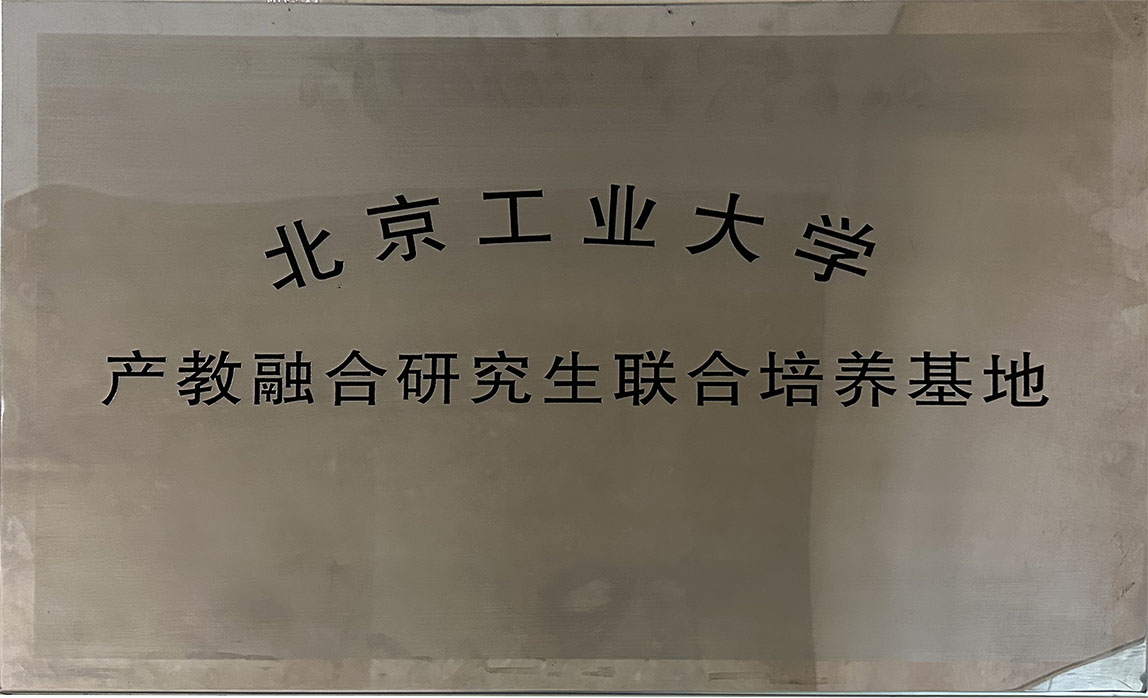 北京工业大学
产教融合研究生联合培养基地